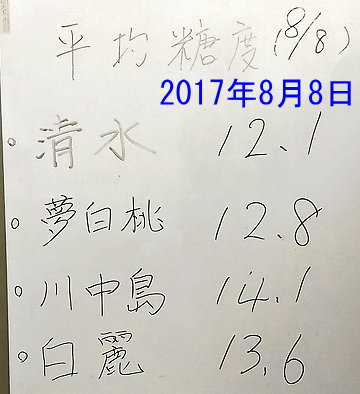 平均糖度(8/8)
2017年8月8日
○ 清水 12.1
○ 夢白桃 12.8
○ 川中島 14.1
○ 白麗 13.6